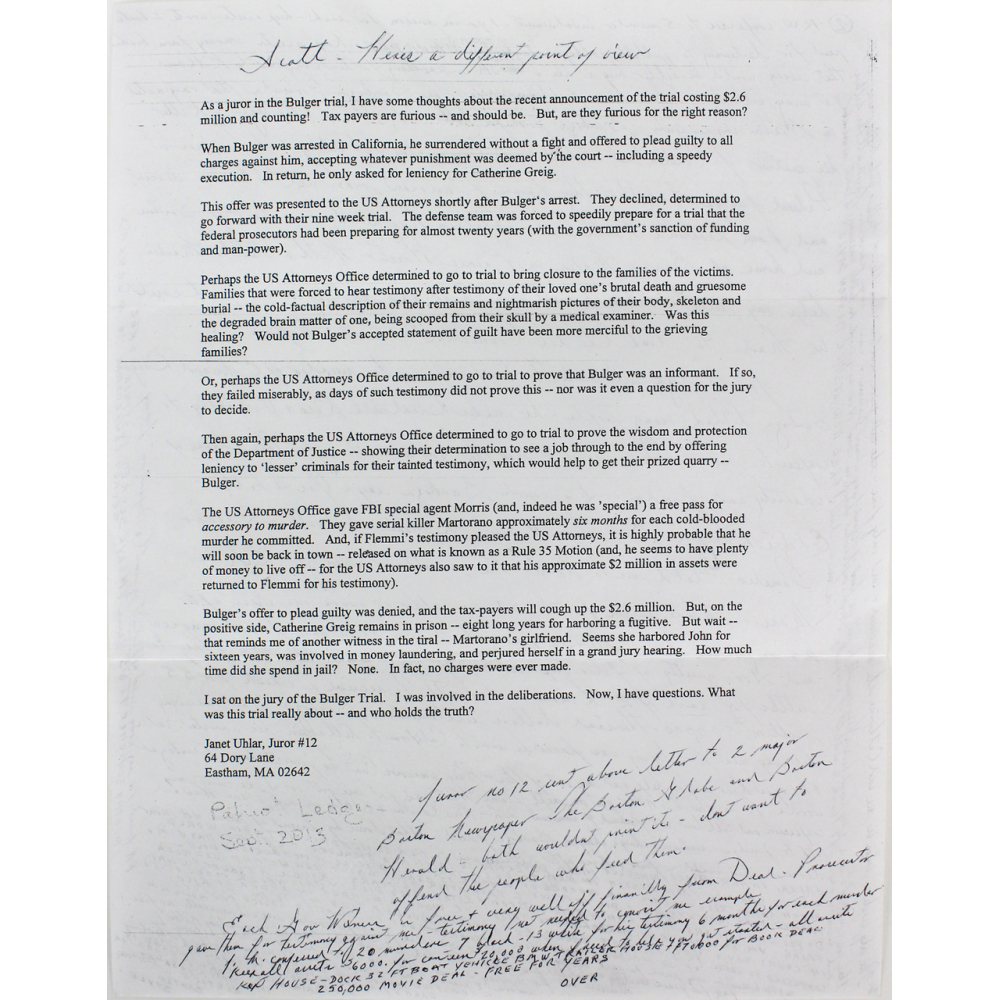 Scott - Heres a different point of view
As a juror in the Bulger trial, I have some thoughts about the recent announcement of the trial costing $2.6
million and counting!   Tax payers are furious -- and should be.   But, are they furious for the right reason?
When Bulger was arrested in California, he surrendered without a fight and offered to plead guilty to all
charges against him, accepting whatever punishment was deemed by the court -- including a speedy
execution.   In return, he only asked for leniency for Catherine Greig.
This offer was presented to the US Attorneys shortly after Bulger's arrest.   They declined, determined to
go forward with their nine week trial.   The defense team was forced to speedily prepare for a trial that the
federal prosecutors had been preparing for almost twenty years (with the government's sanction of funding
and man-power).
Perhaps the US Attorneys Office determined to go to trial to bring closure to the families of the victims.
Families that were forced to hear testimony after testimony of their loved one's brutal death and gruesome
burial -- the cold-factual description of their remains and nightmarish pictures of their body, skeleton and
the degraded brain matter of one, being scooped from their skull by a medical examiner.   Was this
healing?   Would not Bulger's accepted statement of guilt have been more merciful to the grieving
families?
Or, perhaps the US Attorneys Office determined to go to trial to prove that Bulger was an informant.   If so,
they failed miserably, as days of such testimony did not prove this -- nor was it even a question for the jury
to decide.
Then again, perhaps the US Attorneys Office determined to go to trial to prove the wisdom and protection
of the Department of Justice -- showing their determination to see a job through to the end by offering
leniency to 'lesser' criminals for their tainted testimony, which would help to get their prized quarry --
Bulger.
The US Attorneys Office gave FBI special agent Morris (and, indeed he was 'special') a free pass for
accessory to murder.   They gave serial killer Martorano approximately six months for each cold-blooded
murder he committed.   And, if Flemmi's testimony pleased the US Attorneys, it is highly probable that he
will soon be back in town -- released on what is known as a Rule 35 Motion (and, he seems to have plenty
of money to live off -- for the US Attorneys also saw to it that his approximate $2 million in assets were
returned to Flemmi for his testimony).
Bulger's offer to plead guilty was denied, and the tax-payers will cough up the $2.6 million.   But, on the
positive side, Catherine Greig remains in prison -- eight long years for harboring a fugitive.   But wait --
that reminds me of another witness in the tiral -- Martorano's girlfriend.   Seems she harbored John for
sixteen years, was involved in money laundering, and perjured herself in a grand jury hearing.   How much
time did she spend in jail?   None.   In fact, no charges were ever made.
I sat on the jury of the Bulger Trial.   I was involved in the deliberations.   Now, I have questions. What
was this trial really about -- and who holds the truth?
Janet Uhlar, Juror #12
64 Dory Lane
Eastham, MA 02642
Patriot Ledger
Sept. 2013
Juror no 12 sent above letter to 2 major
Boston Newspaper The Boston Globe and Boston
Herald - both wouldnt print it - dont want to
offend the people who feed them.
Each Gov Witness is free + very well off from Deal - Prosecutor
gave them for testimony against me - testimony needed to convict me example
confessed to 20 murders 7 black - 13 white for his testimony 6 months for each murder
Keep all assets $6000. for 20,000 when get started - all assets
Kept HOUSE - DOCK 32 FT BOAT VEHICLE BMW TRAILER HOUSE + $70000 for BOOK DEAL
250,000 MOVIE DEAL - FREE FOR YEARS
OVER